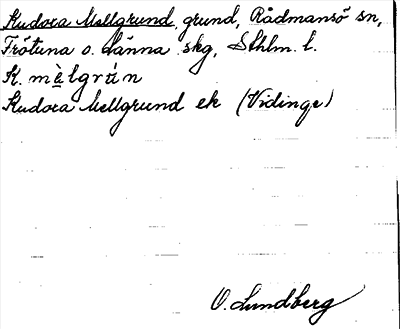 Kudoxa Mellgrund, grund, Rådmansö sn,
Frötuna o. Länna skg, Sthlm. l.
K. mèlgrún
Kudoxa Mellgrund ek (Vidinge)
O. Lundberg